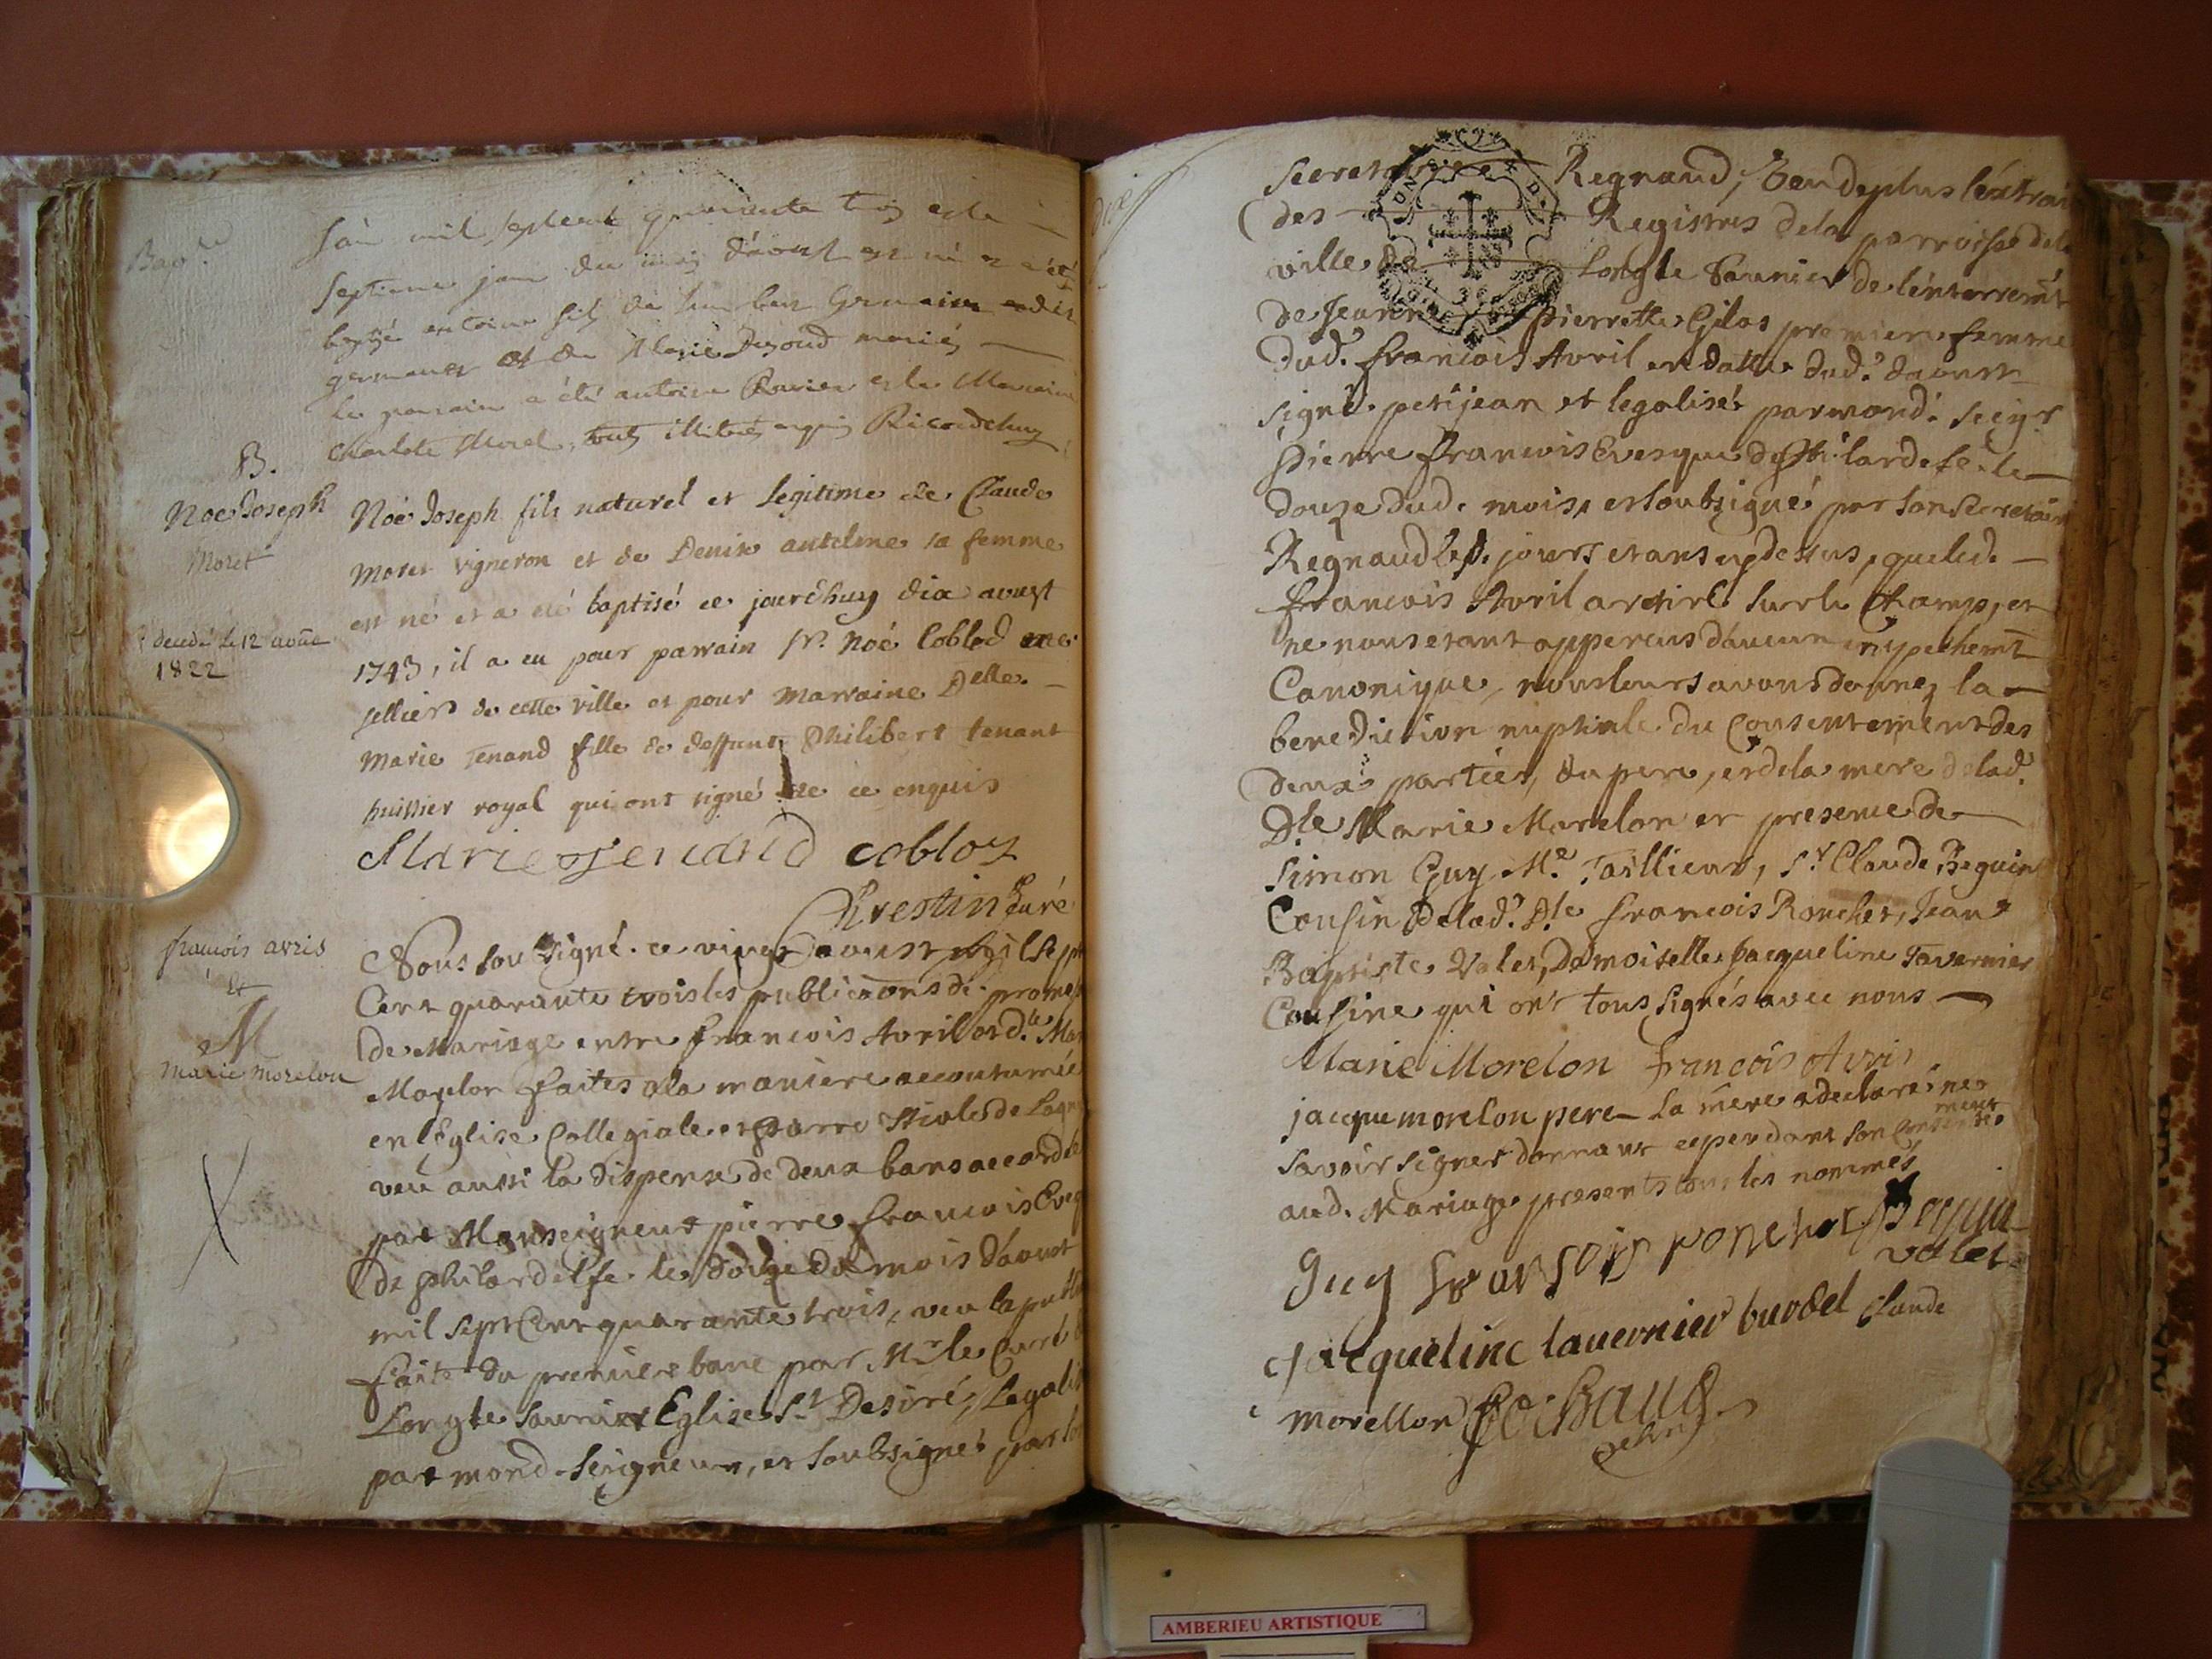 Bap.e
l'an mil sept cent quarante trois et le
septieme jour du mois d'aoust est né et a été
baptizé antoine fils de humbert Germain
germain et de Marie mariés
Le parrain a été antoine Ravier et la Marraine
charlote Morel, tous illiterés enquis Ricordchuz
B.
Noe Joseph
Moret
decedé le 12 aoust
1822
Noé Joseph fils naturel et Legitime de Claude
Moret vigneron et de Denise anteline sa femme
est né et a eté baptisé ce jourd'huy dix aoust
1743, il a eu pour parrain Sr. Noé Coblod me
sellier de cette ville et pour Marraine Delle.
Marie Tenand fille de deffunt Philibert tenant
huissier royal qui ont signé de ce enquis
Marie Tenand cobloz
Krestin Curé
françois avris
et
M
Marie Morelon
Nous sousigné ce vingt aoust mil sept
Cent quarante trois les publicaons de promes
de Mariage entre françois Avril et d.le Mar
Morelon faites a la maniere accoutumée
en l'Eglise Collegiale et
veu aussi la dispense de deux bans accordée
par Monseigneur pierre françois Eveq
de philardelfe le douze du mois d'aoust
mil sept Cent quarante trois, veu la publi
faite du premier banc par Mr. le Curé
Longle Saunier Eglise St. Desiré, Legalis
par mond. Seigneur, et soubsigné par son
secretaire Regnaud, Veu de plus l'extrai
des Registres de la parroisse de la
ville de Longle Saunier de l'enterremt
de Jeanne pierrette Gilas premiere femme
dud. françois Avril en datte dud. d'aoust
signé petijean et legalisé par mond. Seigr
pierre françois Evesque de Philardefe le
douze dud. mois, et soubsigné par son secretaire
Regnaud les. jours et ans cy dessus, que led.
françois Avril a retiré sur le Champ, et
ne nous etant apperçus d'aucun empechemt
Canonique, nous leurs avons donnez la
benediction nuptiale du Consentement des
deux parties, du pere, et de la mere de lad.
Dle Marie Morelon et presence de
Simon Guy Me. Taillieur, Sr. Claude Beguin
Cousin de lad. Dle françois Ronchet, Jean
Baptiste Valet, Demoiselle Jacqueline Tavernier
Cousine qui ont tous signés avec nous
Marie Morelon françois Avris
jacque morelon pere La mere a declaré ne
savoir signer donnant cependant son Consentement
aud. Mariage presents tous les nommés
guy françois ronchet Beguin
valet
Jacqueline tavernier burdel claude
morellon